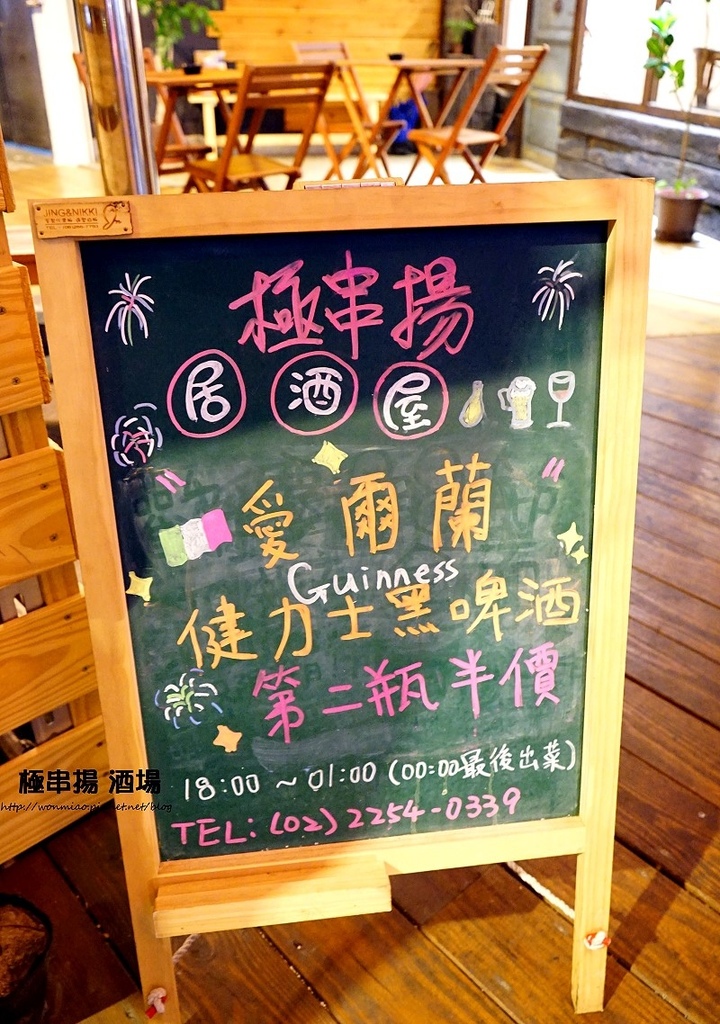 JING&NIKKI
極串揚
居酒屋
愛爾蘭
Guinness
健力士黑啤酒
第二瓶半價
18:00 ~ 01:00 (00:00最後出菜)
TEL: (02) 2254-0339
極串揚 酒場